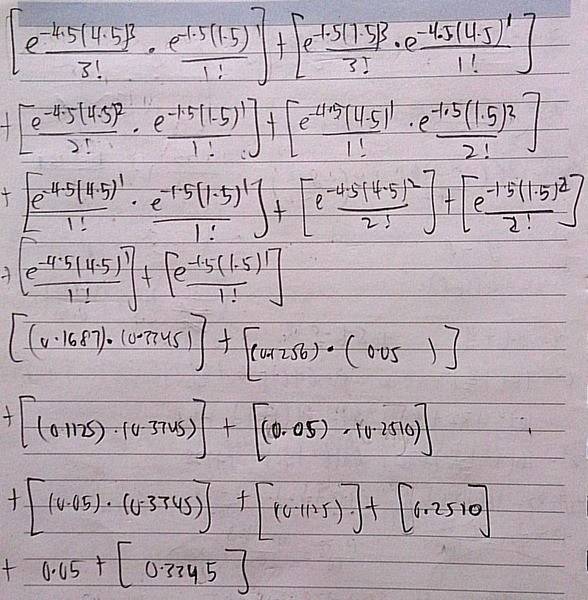 [e^-4.5(4.5)^3/3! · e^-1.5(1.5)^1/1!] + [e^-1.5(1.5)^3/3! · e^-4.5(4.5)^1/1!]
+ [e^-4.5(4.5)^2/2! · e^-1.5(1.5)^1/1!] + [e^-4.5(4.5)^1/1! · e^-1.5(1.5)^2/2!]
+ [e^-4.5(4.5)^1/1! · e^-1.5(1.5)^1/1!] + [e^-4.5(4.5)^2/2!] + [e^-1.5(1.5)^2/2!]
+ [e^-4.5(4.5)^1/1!] + [e^-1.5(1.5)^1/1!]
[(0.1687)·(0.3345)] + [(0.1256)·(0.05 )]
+ [(0.1125)·(0.3345)] + [(0.05)·(0.2510)]
+ [(0.05)·(0.3345)] + [(0.1125)·] + [0.2510]
+ 0.05 + [0.3345]